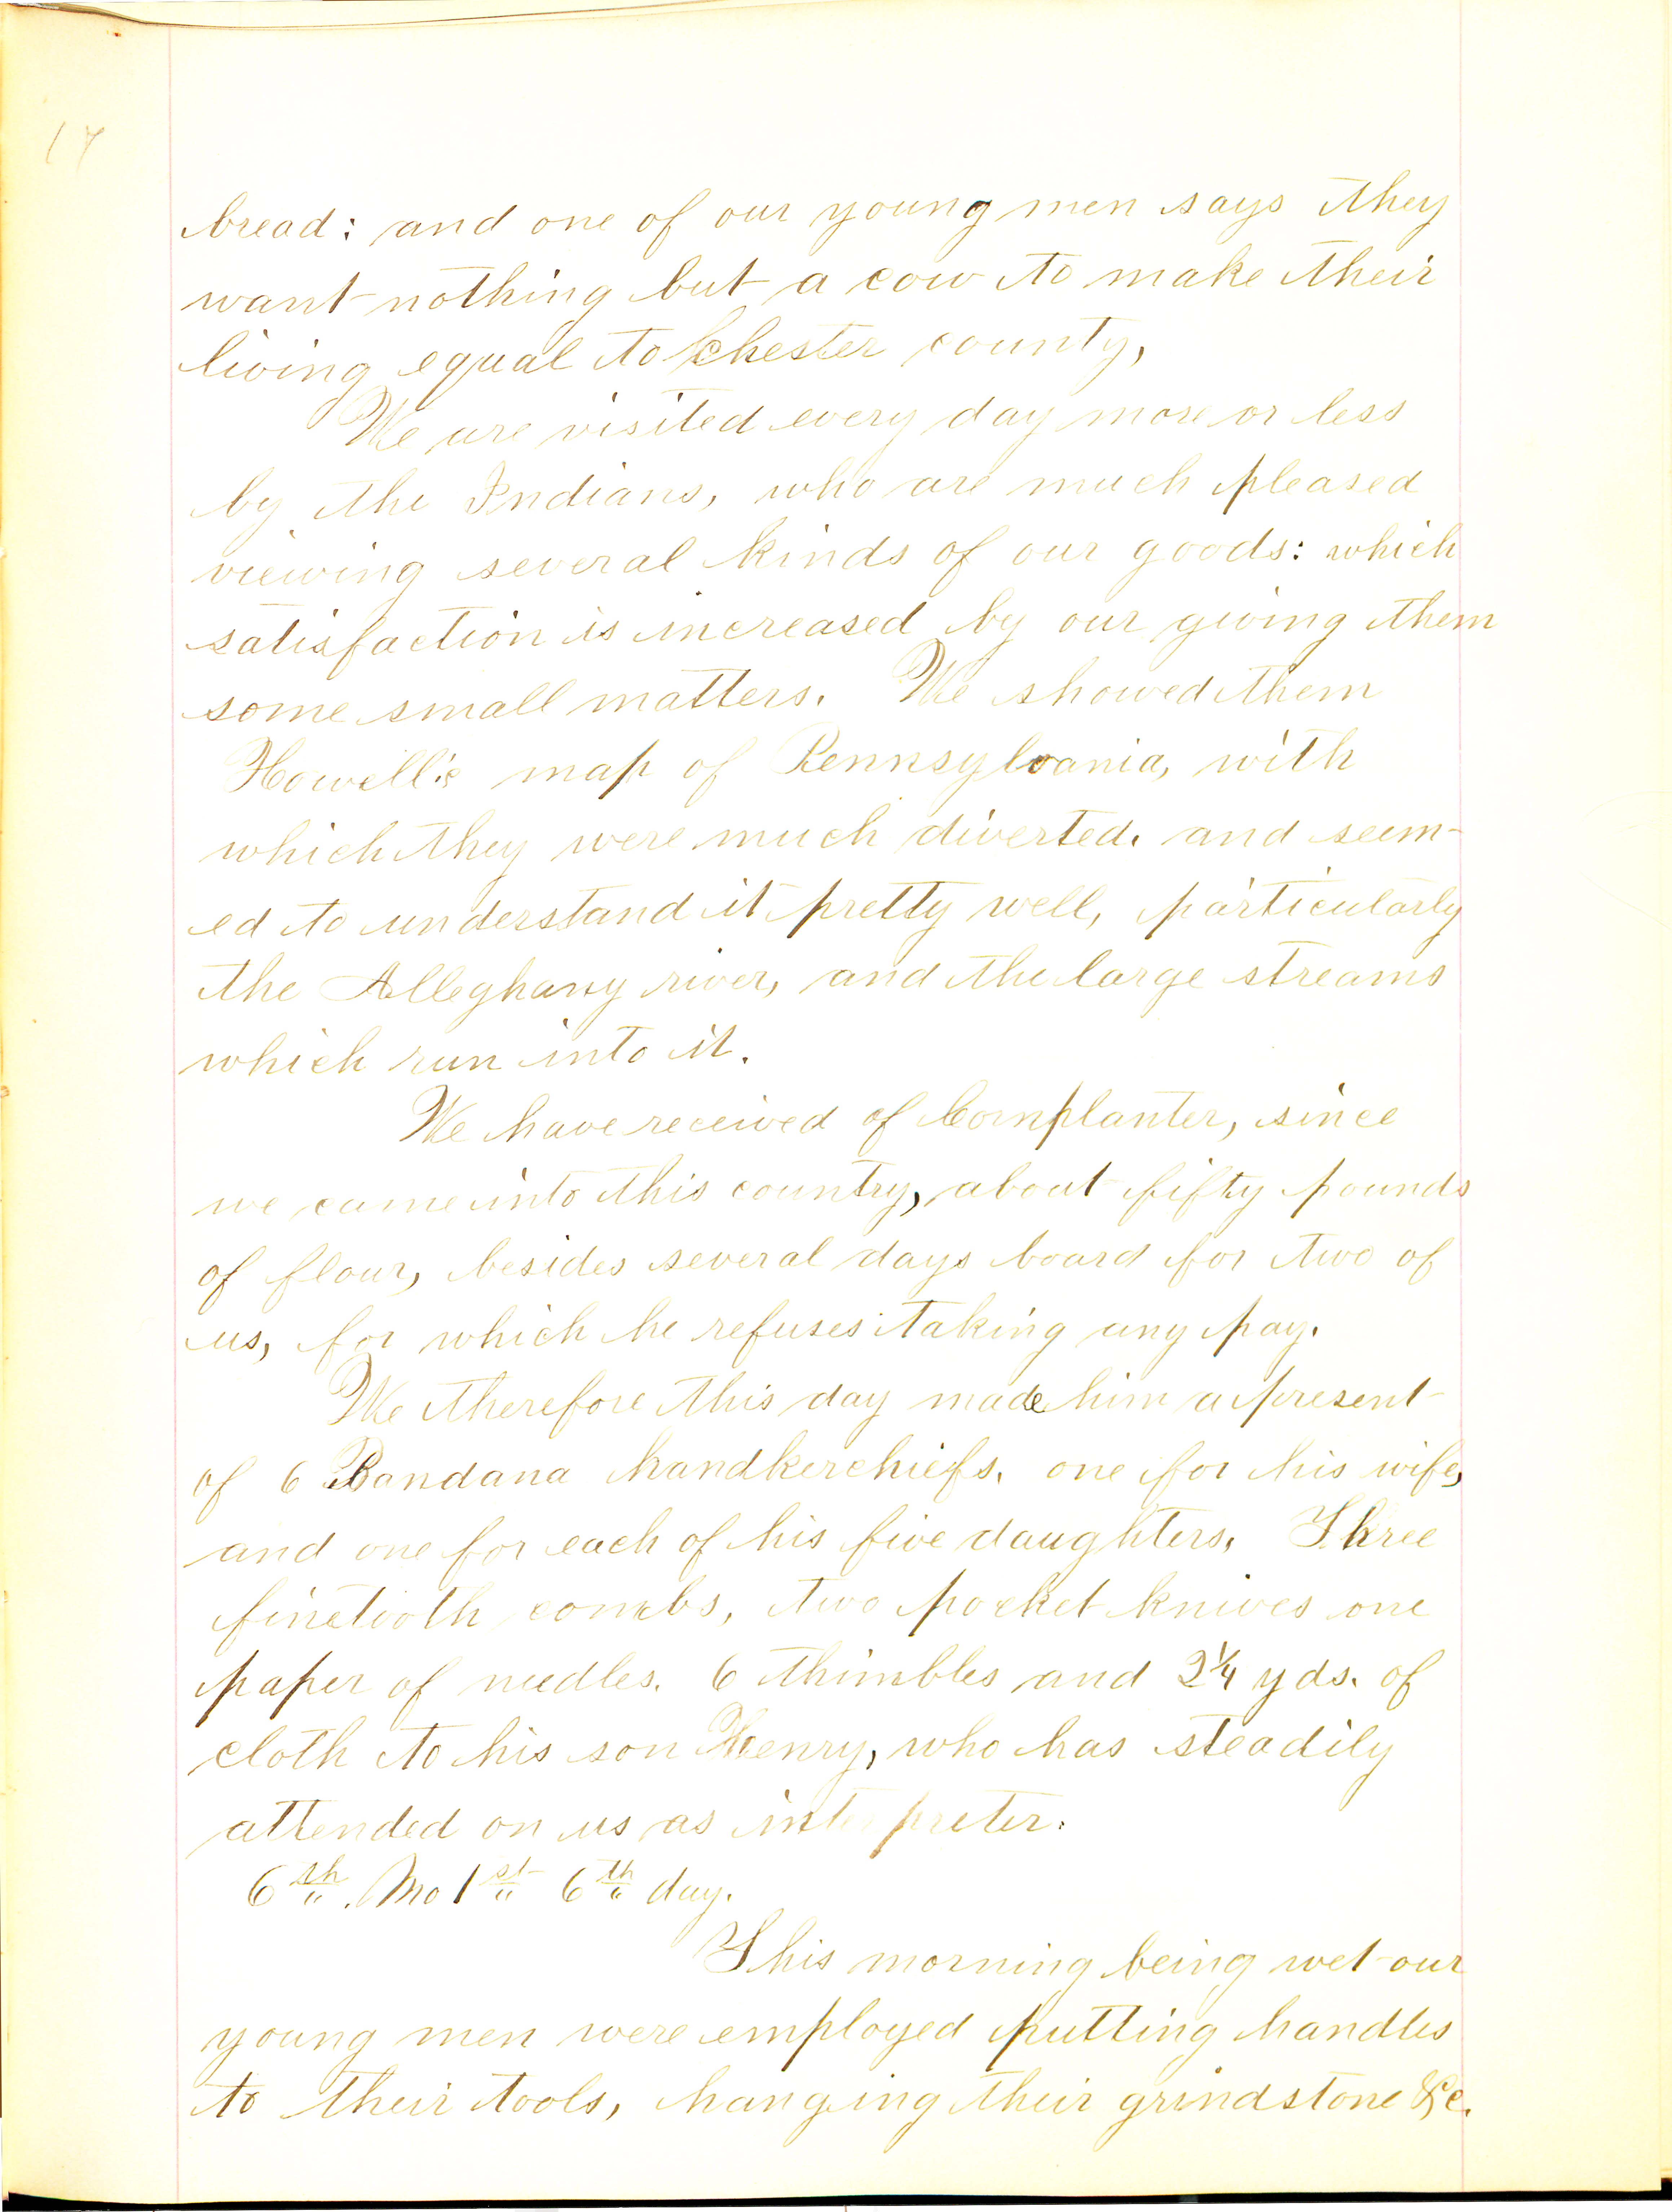 17
bread: and one of our young men says they
want nothing but a cow to make their
living equal to Chester county,
We are visited every day more or less
by the Indians, who are much pleased
viewing several kinds of our goods: which
satisfaction is increased by our giving them
some small matters. We showed them
Howell's map of Pennsylvania, with
which they were much diverted. and seem-
ed to understand it pretty well, particularly
the Alleghany river, and the large streams
which run into it.
We have received of Cornplanter, since
we came into this country, about fifty pounds
of flour, besides several days board for two of
us, for which he refuses taking any pay.
We therefore this day made him a present
of 6 Bandana handkerchiefs. one for his wife,
and one for each of his five daughters, Three
finetooth combs, two pocket knives one
paper of needles. 6 thimbles and 2¼ yds. of
cloth to his son Henry, who has steadily
attended on us as interpreter.
6th. Mo 1st 6th day.
This morning being wet our
young men were employed putting handles
to their tools, hanging their grindstone &c.